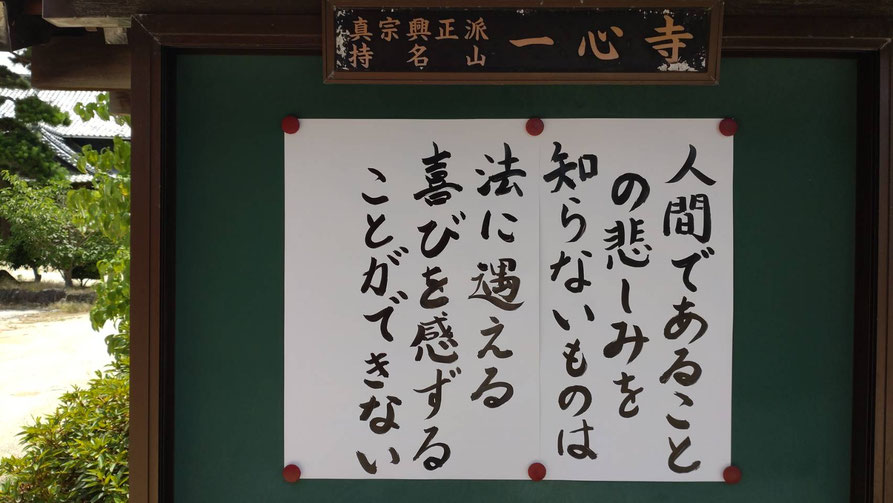 真宗興正派
持名山
一心寺
人間であること
の悲しみを
知らないものは
法に遇える
喜びを感ずる
ことができない